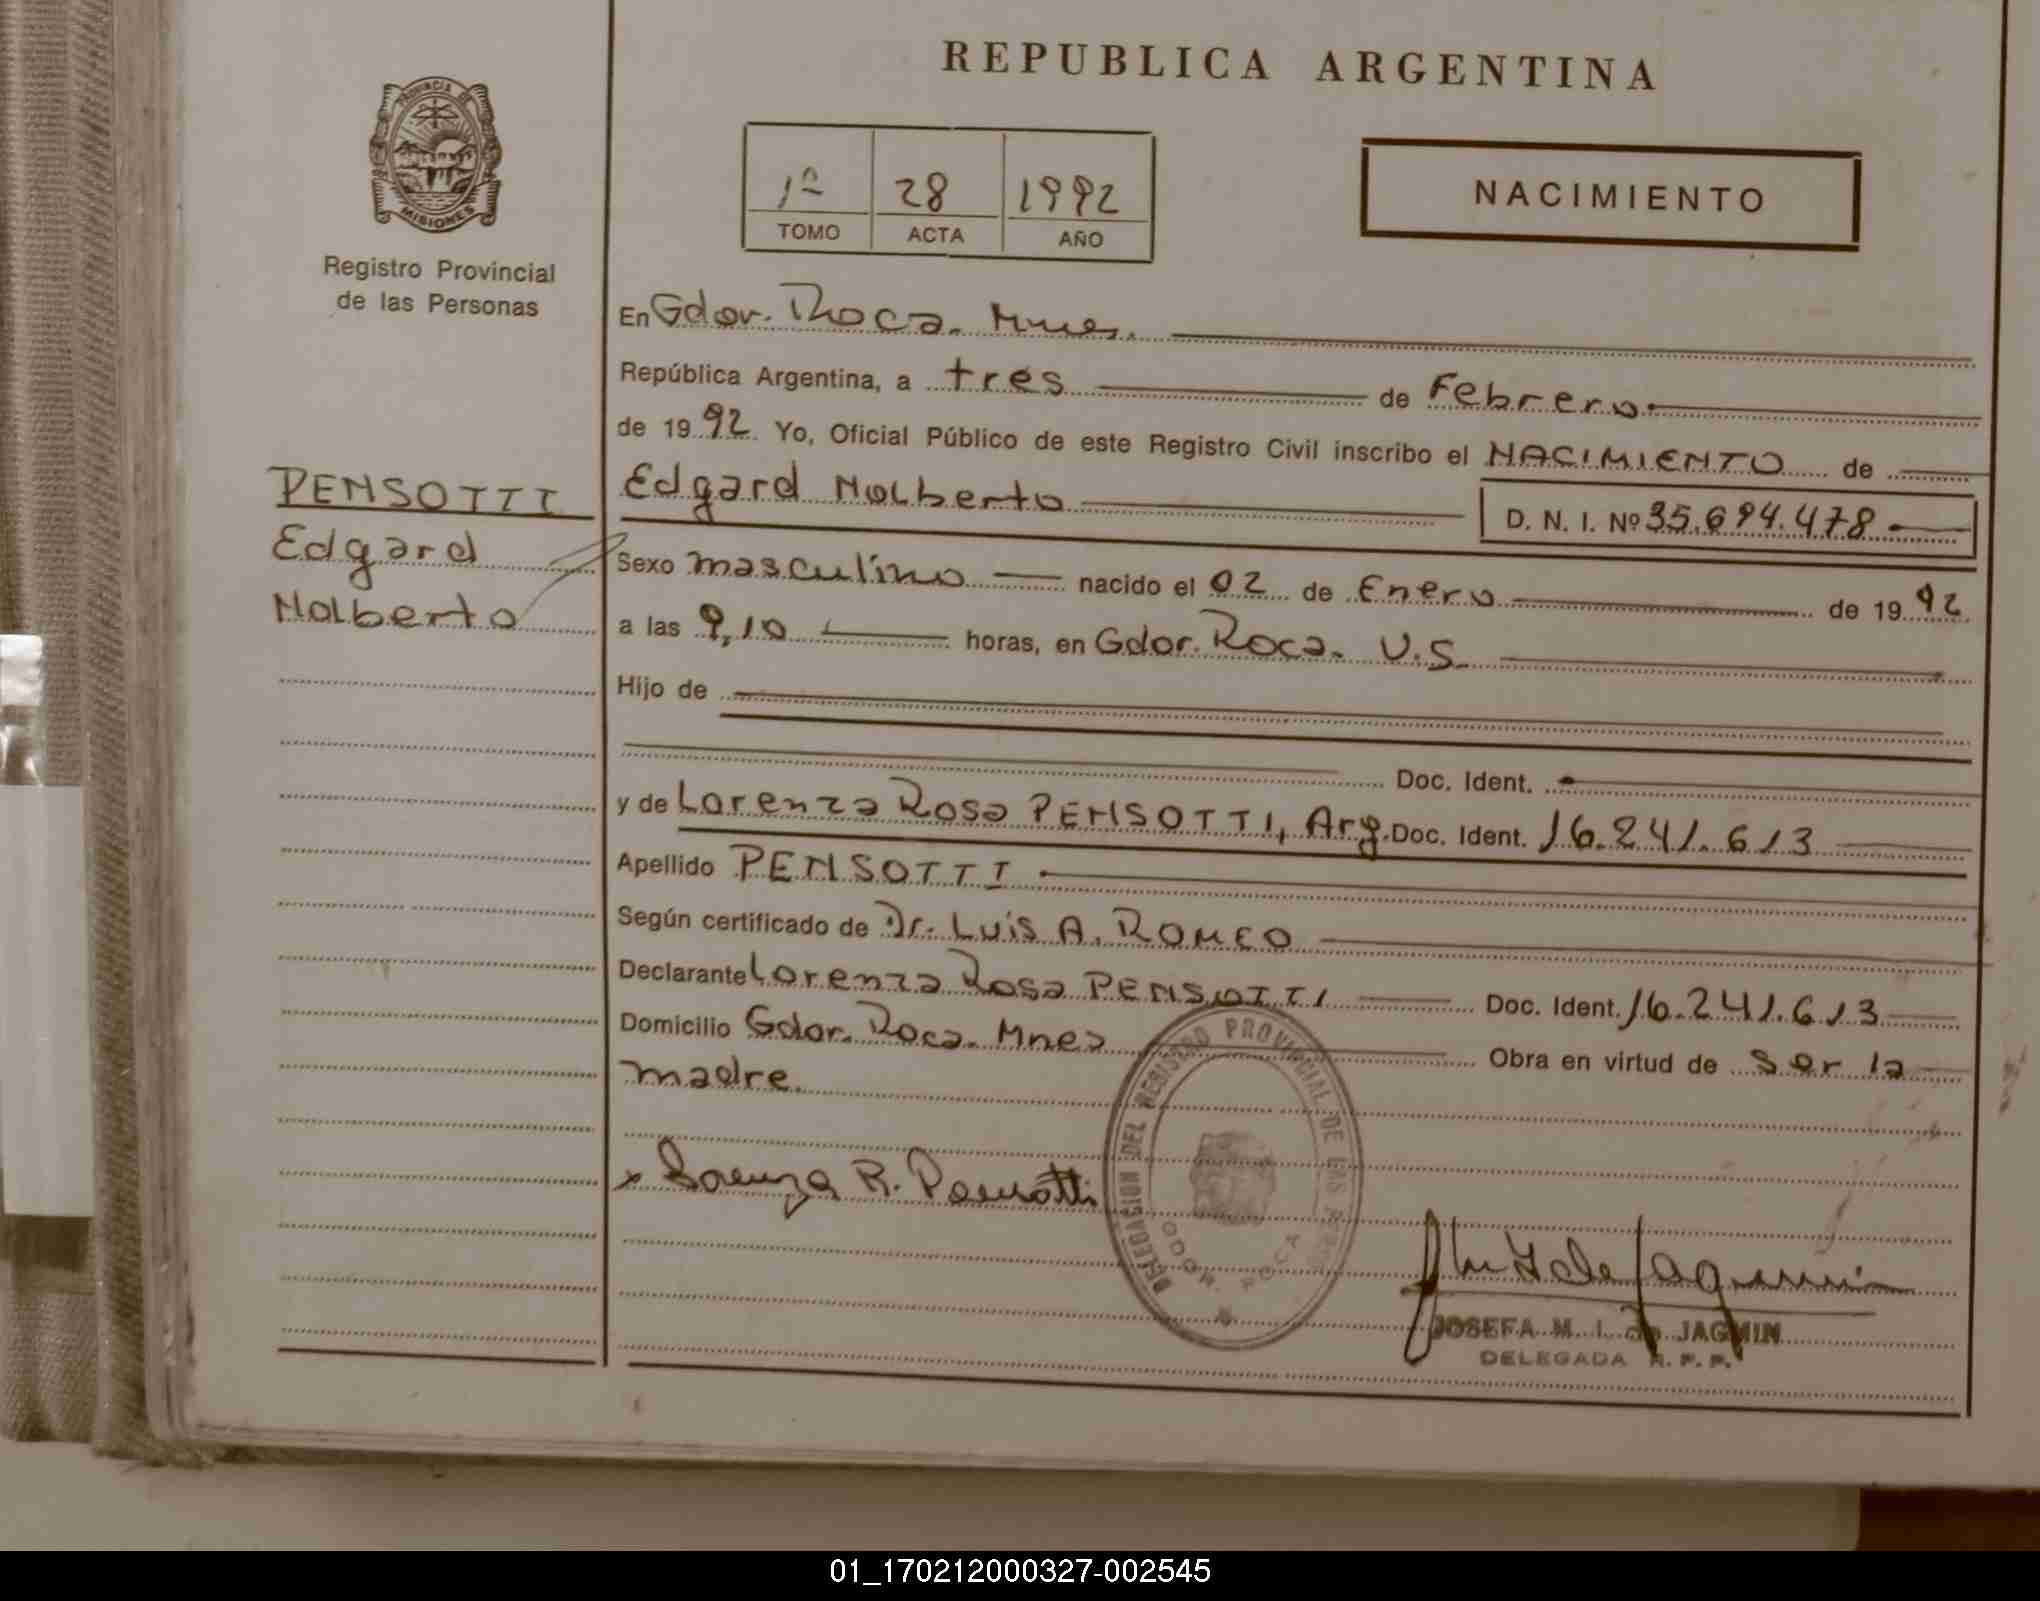 REPUBLICA ARGENTINA
PROVINCIA DE
MISIONES
Registro Provincial
de las Personas
1º 28 1992
TOMO ACTA AÑO
NACIMIENTO
En Gdor. Roca. Mnes.
República Argentina, a tres de Febrero
de 1992 Yo, Oficial Público de este Registro Civil inscribo el NACIMIENTO de
PENSOTTI
Edgard
Nolberto
Edgard Nolberto D. N. I. Nº 35.694.478
Sexo masculino nacido el 02 de Enero de 1992
a las 9,10 horas, en Gdor. Roca. U.S.
Hijo de
Doc. Ident.
y de Lorenza Rosa PENSOTTI, Arg. Doc. Ident. 16.241.613
Apellido PENSOTTI
Según certificado de Dr. Luis A. ROMEO
Declarante Lorenza Rosa PENSOTTI Doc. Ident. 16.241.613
Domicilio Gdor. Roca. Mnes Obra en virtud de ser la
madre.
DELEGACION DEL REGISTRO PROVINCIAL DE LAS
GDOR. ROCA
x Lorenza R. Pensotti
JOSEFA M. I. de JAGMIN
DELEGADA R. P. P.
01_170212000327-002545